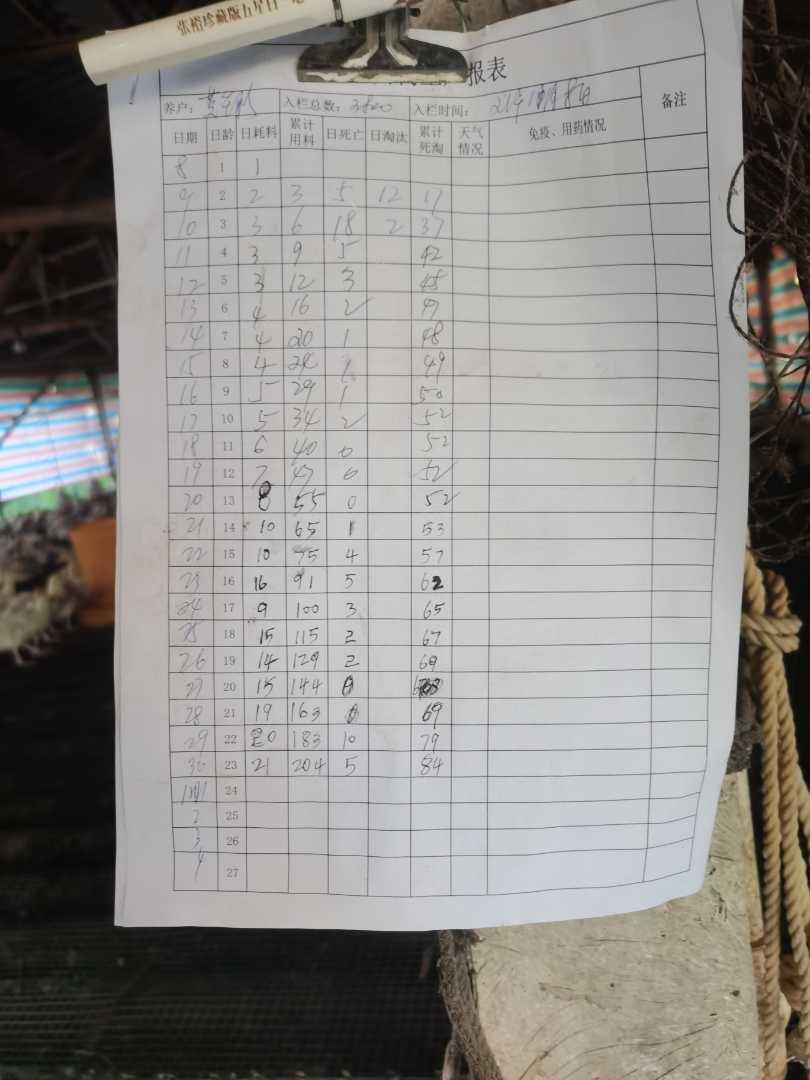 张裕珍藏版五星白
报表
养户： 入栏总数：3800 入栏时间：21年 月8日 备注
日期 日龄 日耗料 累计用料 日死亡 日淘汰 累计死淘 天气情况 免疫、用药情况
8 1 1
9 2 2 3 5 12 17
10 3 3 6 18 2 37
11 4 3 9 5 42
12 5 3 12 3 45
13 6 4 16 2 47
14 7 4 20 1 48
15 8 4 24 1 49
16 9 5 29 1 50
17 10 5 34 2 52
18 11 6 40 0 52
19 12 7 47 0 52
20 13 8 55 0 52
21 14 10 65 1 53
22 15 10 75 4 57
23 16 16 91 5 62
24 17 9 100 3 65
25 18 15 115 2 67
26 19 14 129 2 69
27 20 15 144 0
28 21 19 163 0 69
29 22 20 183 10 79
30 23 21 204 5 84
24
2 25
3 26
4 27